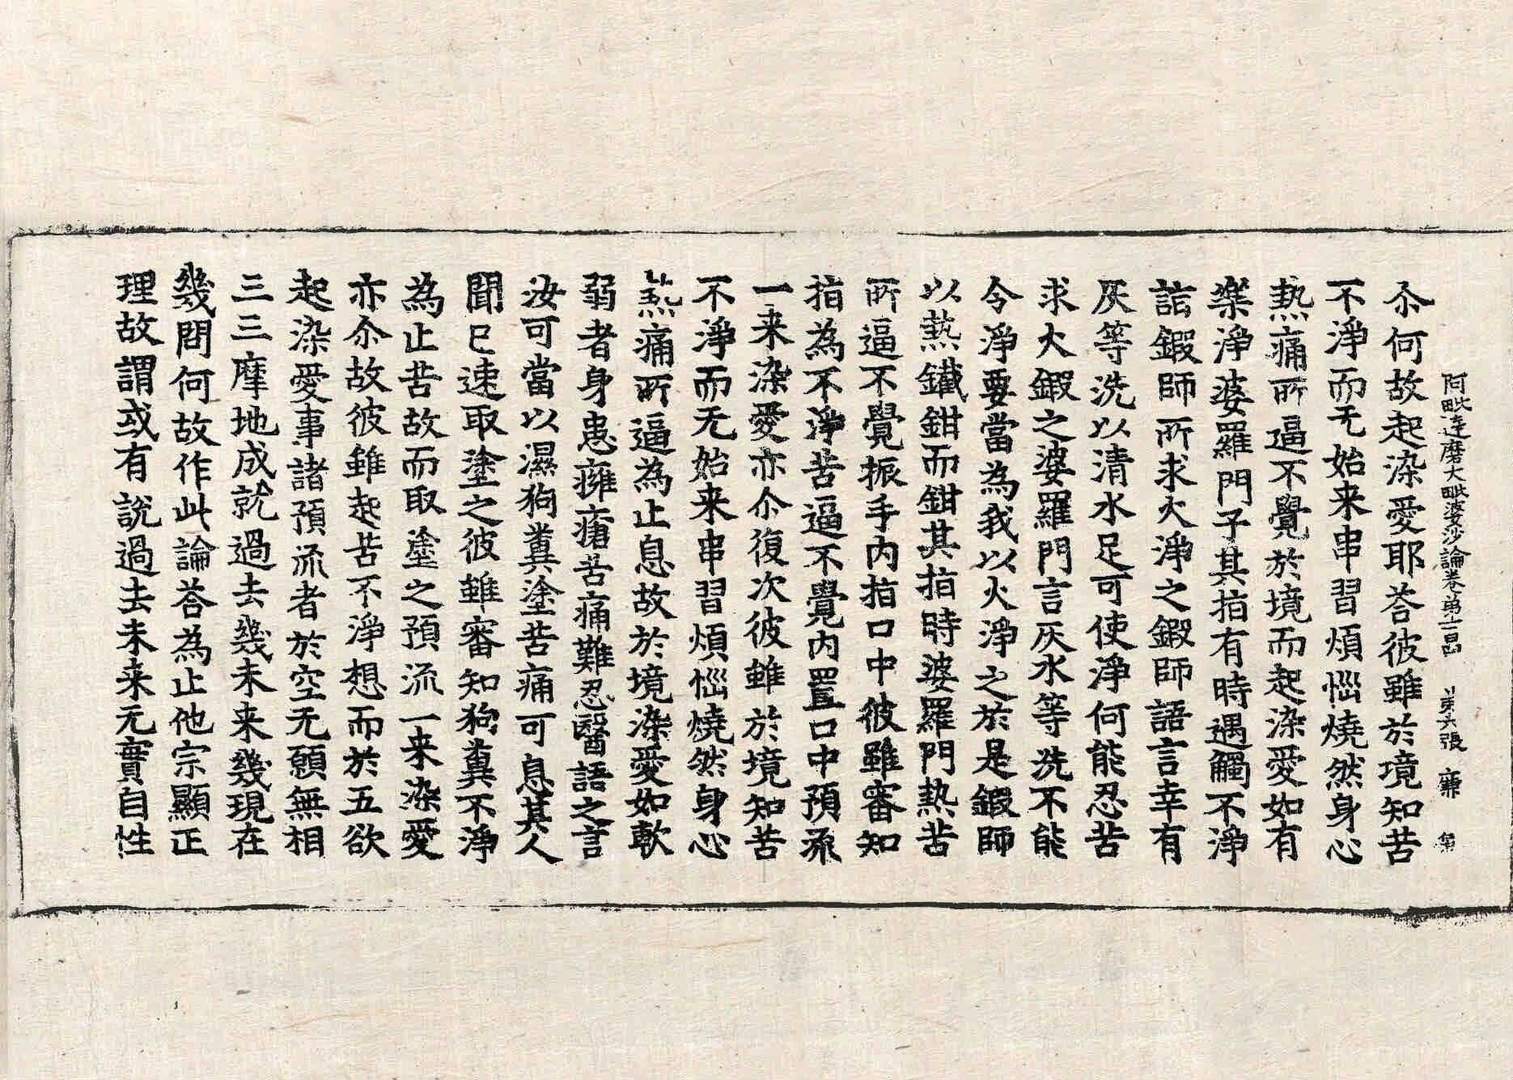 阿毗達磨大毗婆沙論卷第 第 張
尒何故起染愛耶荅彼雖於境知苦
不淨而无始来串習煩惱燒然身心
熱痛所逼不覺於境而起染愛如有
樂淨婆羅門子其指有時遇觸不淨
詣鍜師所求火淨之鍜師語言幸有
灰等洗以清水足可使淨何能忍苦
求火鍜之婆羅門言灰水等洗不能
令淨要當為我以火淨之於是鍜師
以熱鐵鉗而鉗其指時婆羅門熱苦
所逼不覺振手內指口中彼雖審知
指為不淨苦逼不覺內置口中預流
一来染愛亦尒復次彼雖於境知苦
不淨而无始来串習煩惱燒然身心
熱痛所逼為止息故於境染愛如軟
弱者身患癰瘡苦痛難忍醫語之言
汝可當以濕狗糞塗苦痛可息其人
聞已速取塗之彼雖審知狗糞不淨
為止苦故而取塗之預流一来染愛
亦尒故彼雖起苦不淨想而於五欲
起染愛事諸預流者於空无願無相
三三摩地成就過去幾未来幾現在
幾問何故作此論荅為止他宗顯正
理故謂或有說過去未来无實自性